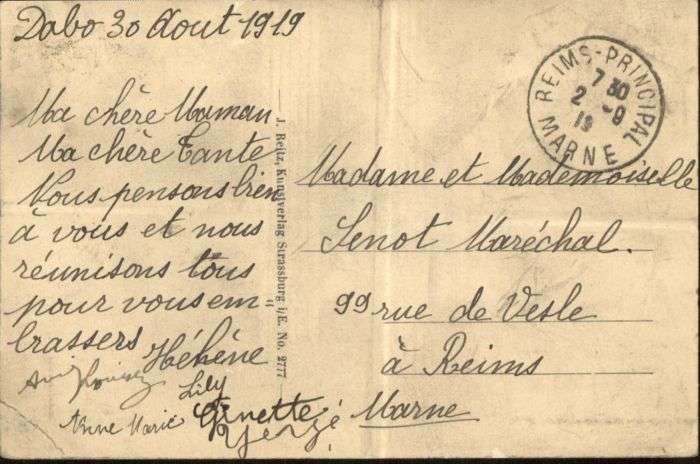 Dabo 30 Aout 1919
Ma chère Maman
Ma chère Tante
Nous pensons bien
à vous et nous
réunisons tous
pour vous em
brassers Héhène
Lily
Anne Marie Ginette
J. Reitz, Kunstverlag Strassburg i/E. No. 2777
REIMS-PRINCIPAL
7 30
2 -9
19
MARNE
Madame et Mademoiselle
Senot Maréchal.
99 rue de Vesle
à Reims
Marne